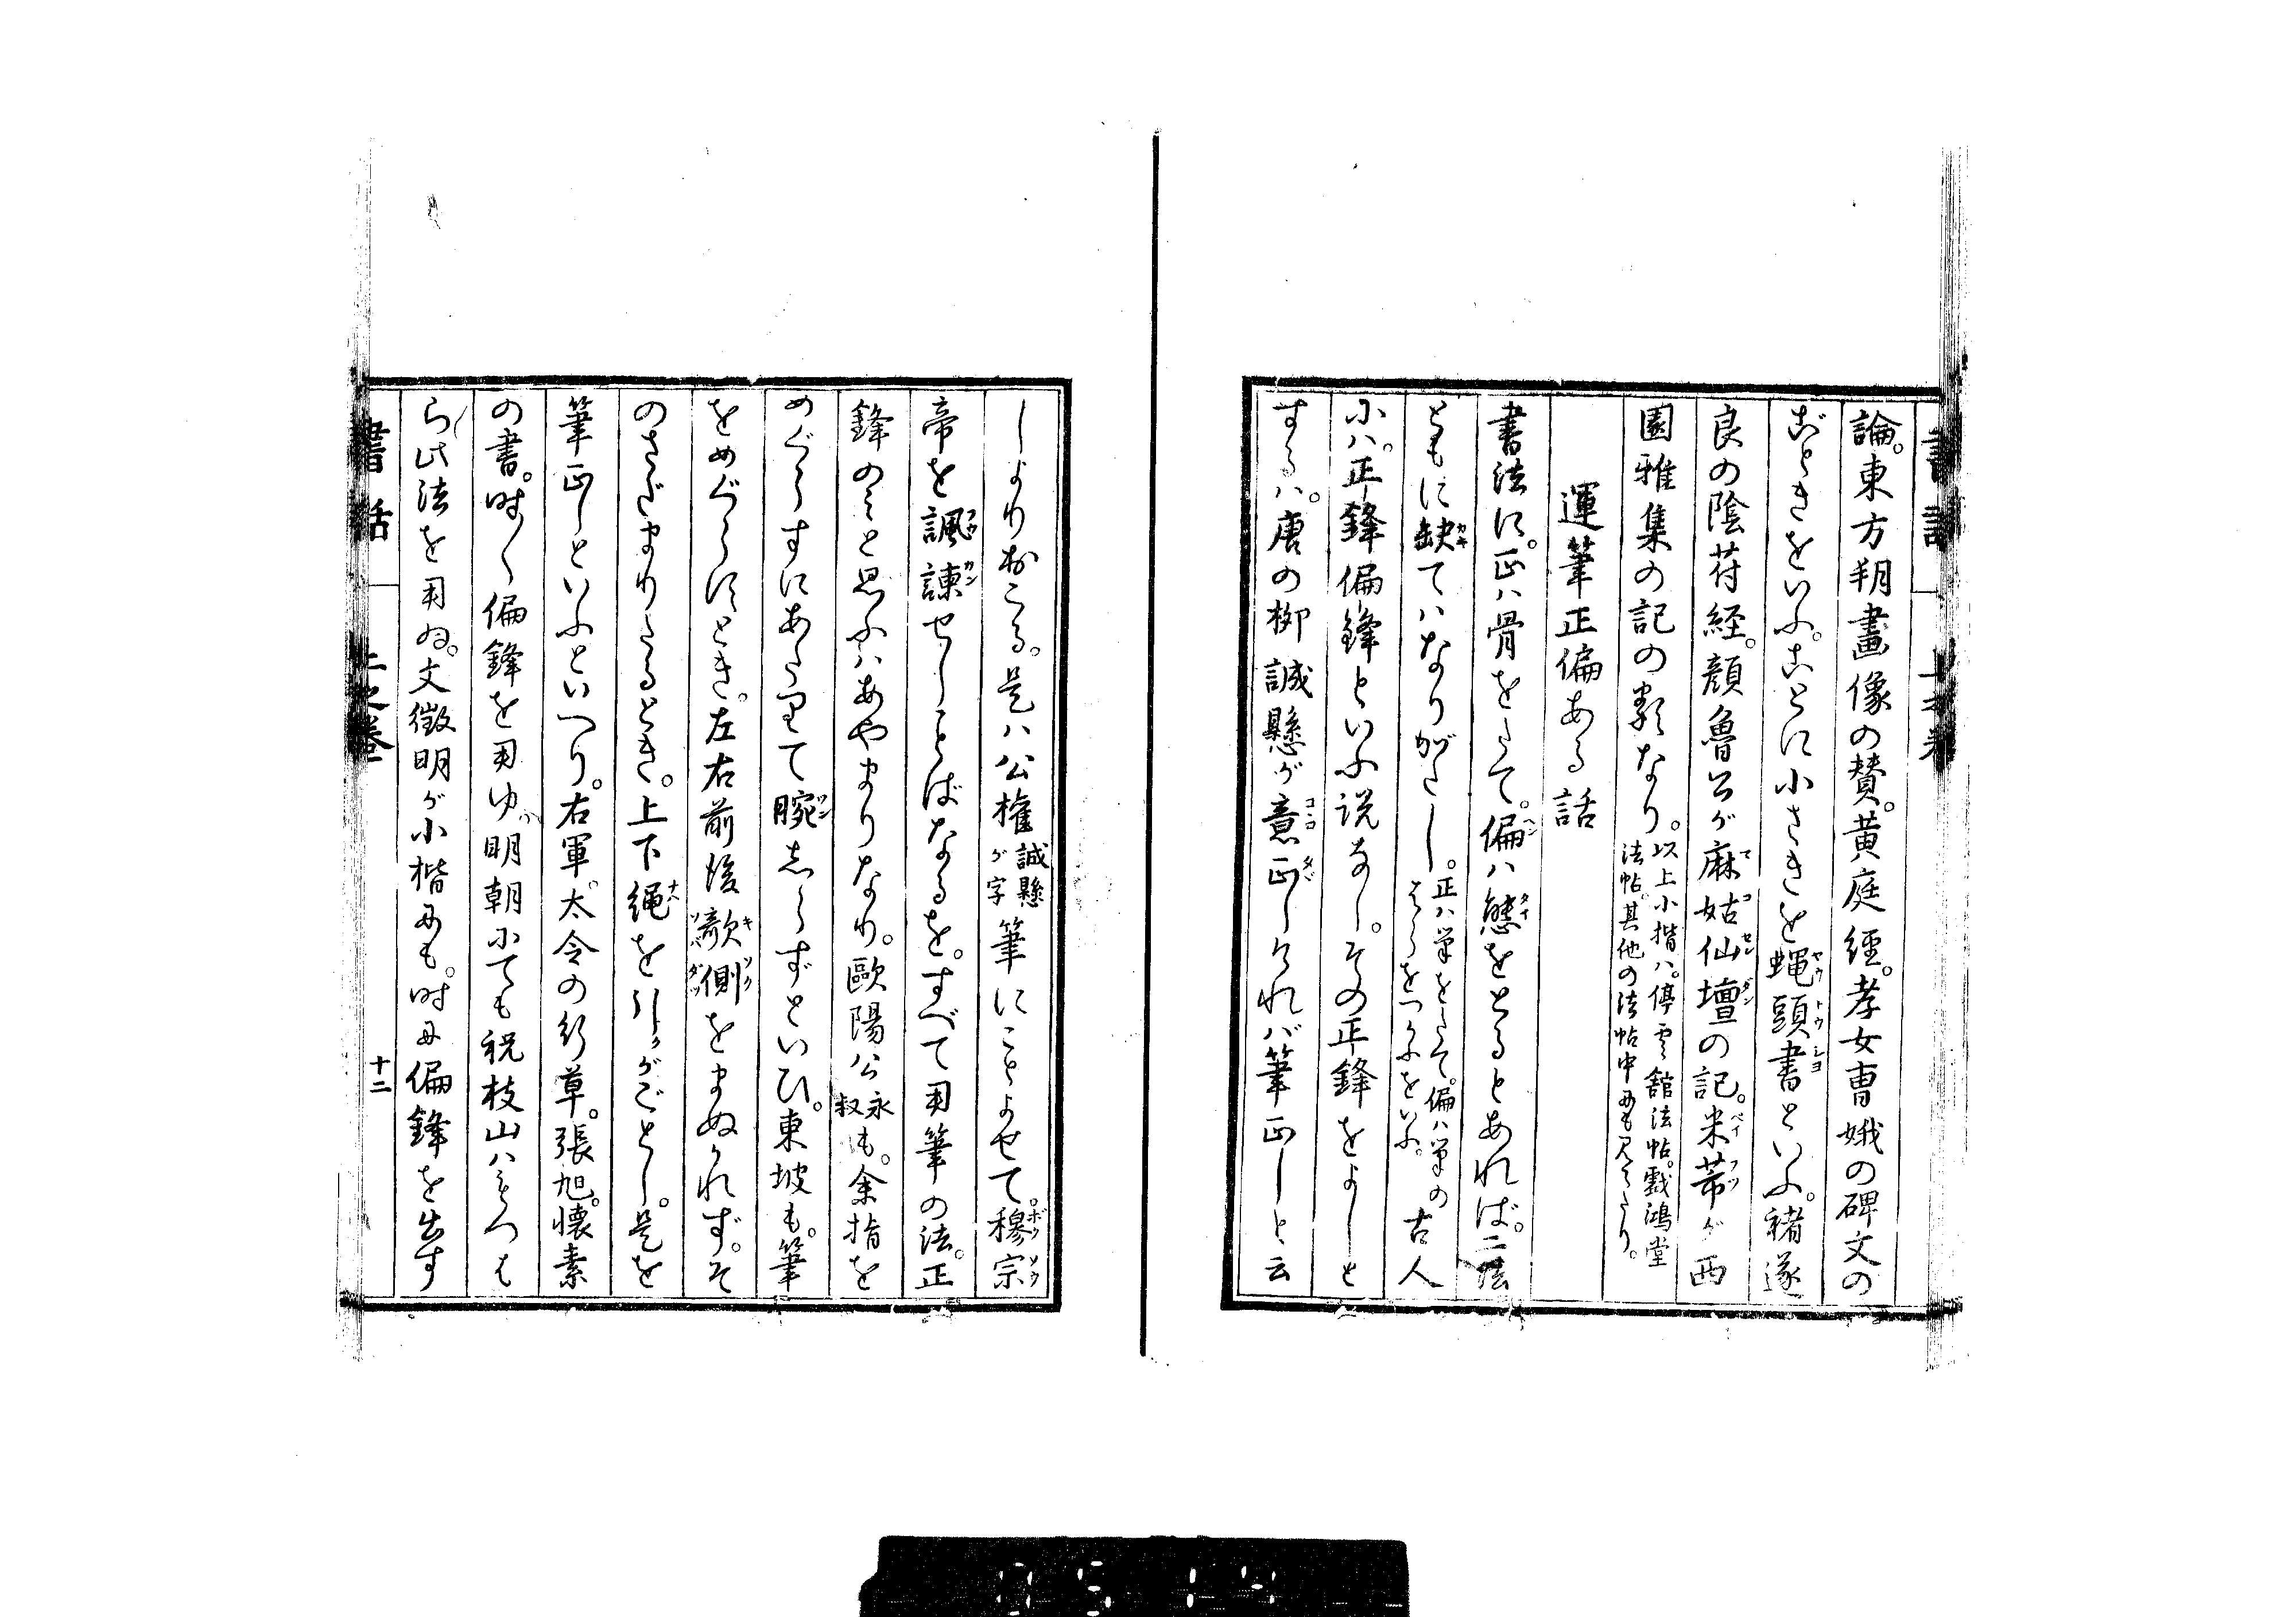 書話 上之巻
論。東方朔畫像の賛。黄庭經。孝女曹娥の碑文の
ごときをいふ。ことに小さきを蠅頭書といふ。褚遂
良の陰符経。顔魯公が麻姑仙壇の記。米芾が西
園雅集の記の類なり。以上小揩ハ。停雲舘法帖。戯鴻堂
法帖。其他の法帖中にも見えたり。
運筆正偏ある話
書法に。正ハ骨をたて。偏ハ態をとるとあれば。二法
ともに缺てハなりがたし。正ハ筆をたて。偏ハ筆の
はらをつかふをいふ。古人
にハ。正鋒偏鋒といふ説なし。その正鋒をよしと
するハ。唐の柳誠懸が意正しけれバ筆正しと云
しよりおこる。是ハ公権誠懸
が字筆にことよせて。穆宗
帝を諷諌せしことばなるを。すべて用筆の法。正
鋒のミと思ふハあやまりなり。歐陽公永
叔も。余指を
めぐらすにあたりて腕しらずといひ。東坡も。筆
をめぐらすとき。左右前後欹側をまぬかれず。そ
のさだまりたるとき。上下繩を引くがごとし。是を
筆正しといふといへり。右軍。太令の行草。張旭。懐素
の書。時〱偏鋒を用ゆ。明朝にても祝枝山ハもつは
ら此法を用ゐ。文徴明が小楷にも。時に偏鋒を出す
書話 上之巻 十二